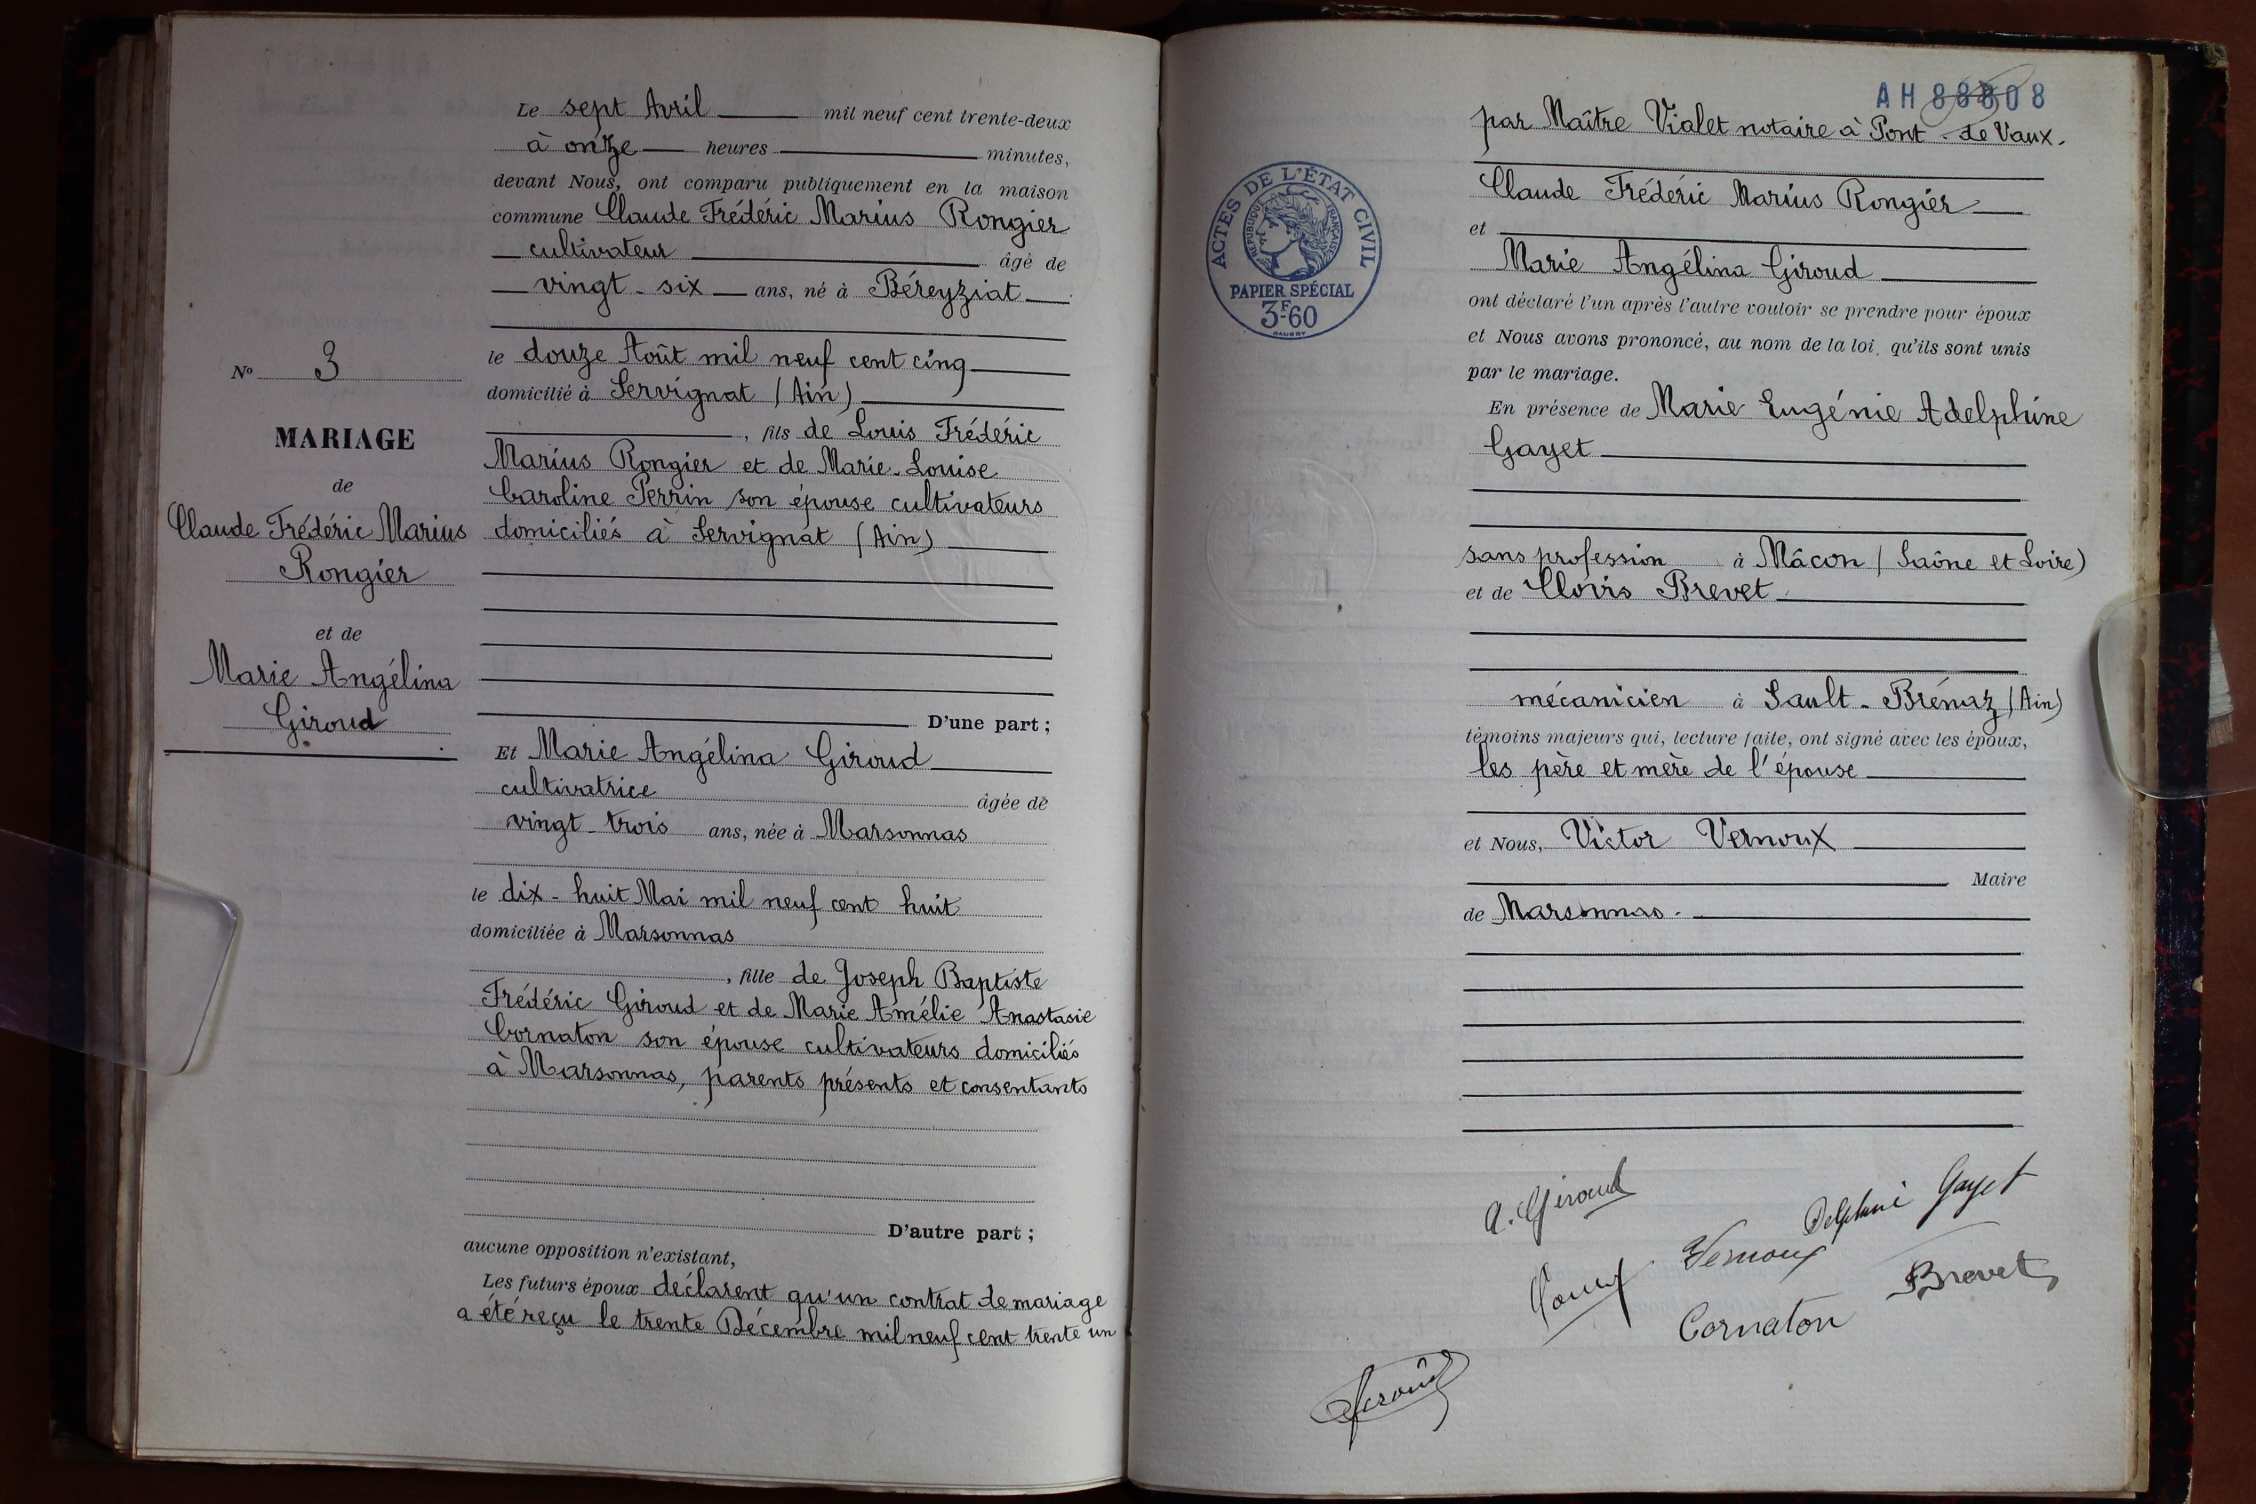 Le sept Avril mil neuf cent trente-deux
à onze heures minutes,
devant Nous, ont comparu publiquement en la maison
commune Claude Frédéric Marius Rongier
cultivateur âgé de
vingt-six ans, né à Béreyziat
le douze Août mil neuf cent cinq
domicilié à Servignat (Ain)
, fils de Louis Frédéric
Marius Rongier et de Marie-Louise
Caroline Perrin son épouse cultivateurs
domiciliés à Servignat (Ain)
D'une part ;
Et Marie Angélina Giroud
cultivatrice âgée de
vingt-trois ans, née à Marsonnas
le dix-huit Mai mil neuf cent huit
domiciliée à Marsonnas
, fille de Joseph Baptiste
Frédéric Giroud et de Marie Amélie Anastasie
Cornaton son épouse cultivateurs domiciliés
à Marsonnas, parents présents et consentants
D'autre part ;
aucune opposition n'existant,
Les futurs époux déclarent qu'un contrat de mariage
a été reçu le trente Décembre mil neuf cent trente un
No 3
MARIAGE
de
Claude Frédéric Marius
Rongier
et de
Marie Angélina
Giroud
AH 88808
par Maître Vialet notaire à Pont-de Vaux.
Claude Frédéric Marius Rongier
et
Marie Angélina Giroud
ont déclaré l'un après l'autre vouloir se prendre pour époux
et Nous avons prononcé, au nom de la loi, qu'ils sont unis
par le mariage.
En présence de Marie Eugénie Adelphine
Gayet
sans profession à Mâcon (Saône et Loire)
et de Clovis Brevet
mécanicien à Sault-Brénaz (Ain)
témoins majeurs qui, lecture faite, ont signé avec les époux,
les père et mère de l'épouse
et Nous, Victor Vernoux
Maire
de Marsonnas.
ACTES DE L'ÉTAT CIVIL
RÉPUBLIQUE FRANÇAISE
PAPIER SPÉCIAL
3F60
A. Giroud
Delphine Gayet
Vernoux
Brevet
Cornaton
Giroud